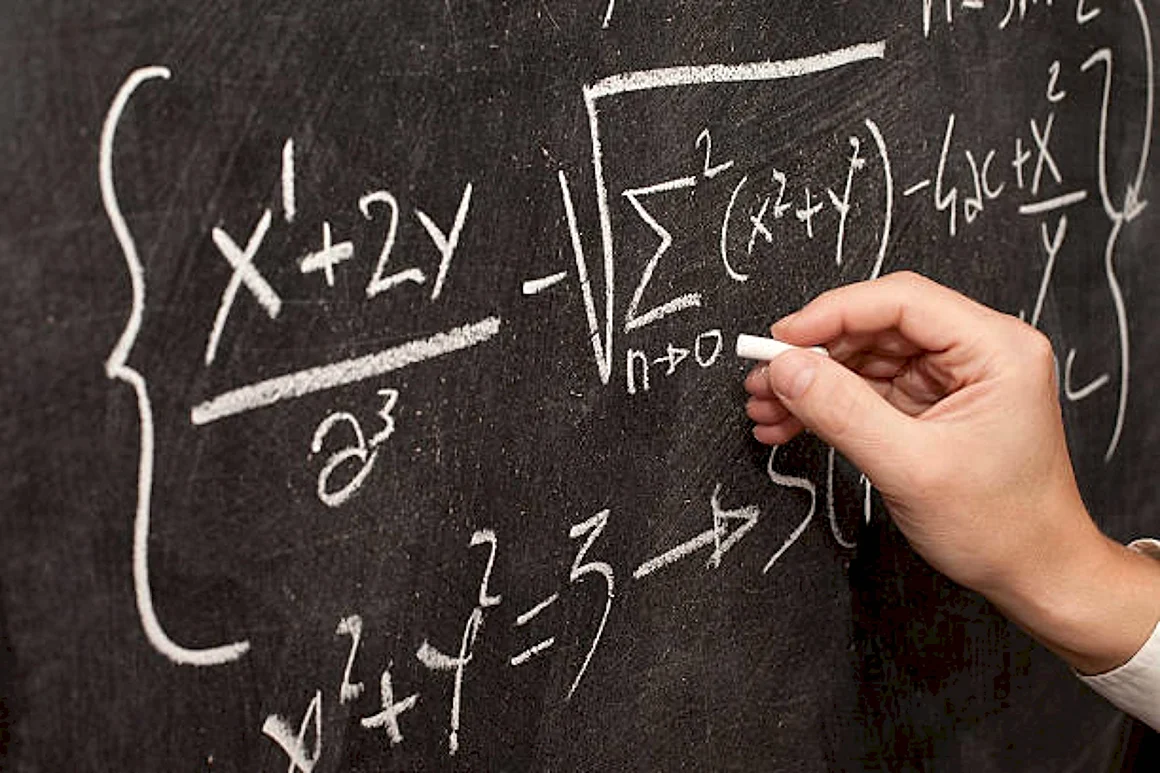 { (x¹ + 2y) / a³ - √ ∑² n→0 (x² + y²) - 4ac + x² / y
x² + y² = 3 → 5(